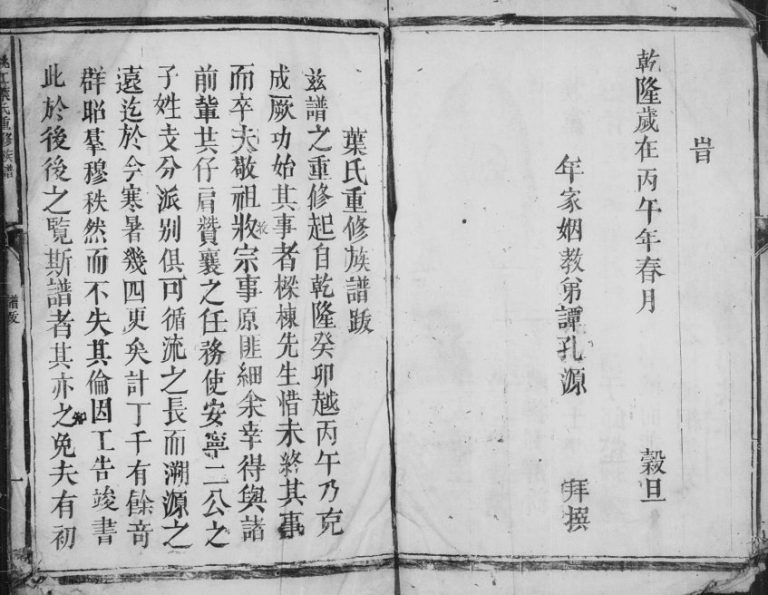 旹
乾隆歲在丙午年春月 穀旦
年家姻教弟譚孔源 拜撰
葉氏重修族譜跋
玆譜之重修起自乾隆癸卯越丙午乃克
成厥功始其事者樑棟先生惜未終其事
而卒夫敬祖收宗事原匪細余幸得與諸
前輩共仔肩贊襄之任務使安寧二公之
子姓支分派別俱可循流之長而溯源之
遠迄於今寒暑幾四更矣計丁千有餘奇
群昭羣穆秩然而不失其倫因工告竣書
此於後後之覧斯譜者其亦之免夫有初
葉氏重修族譜
譜跋
一